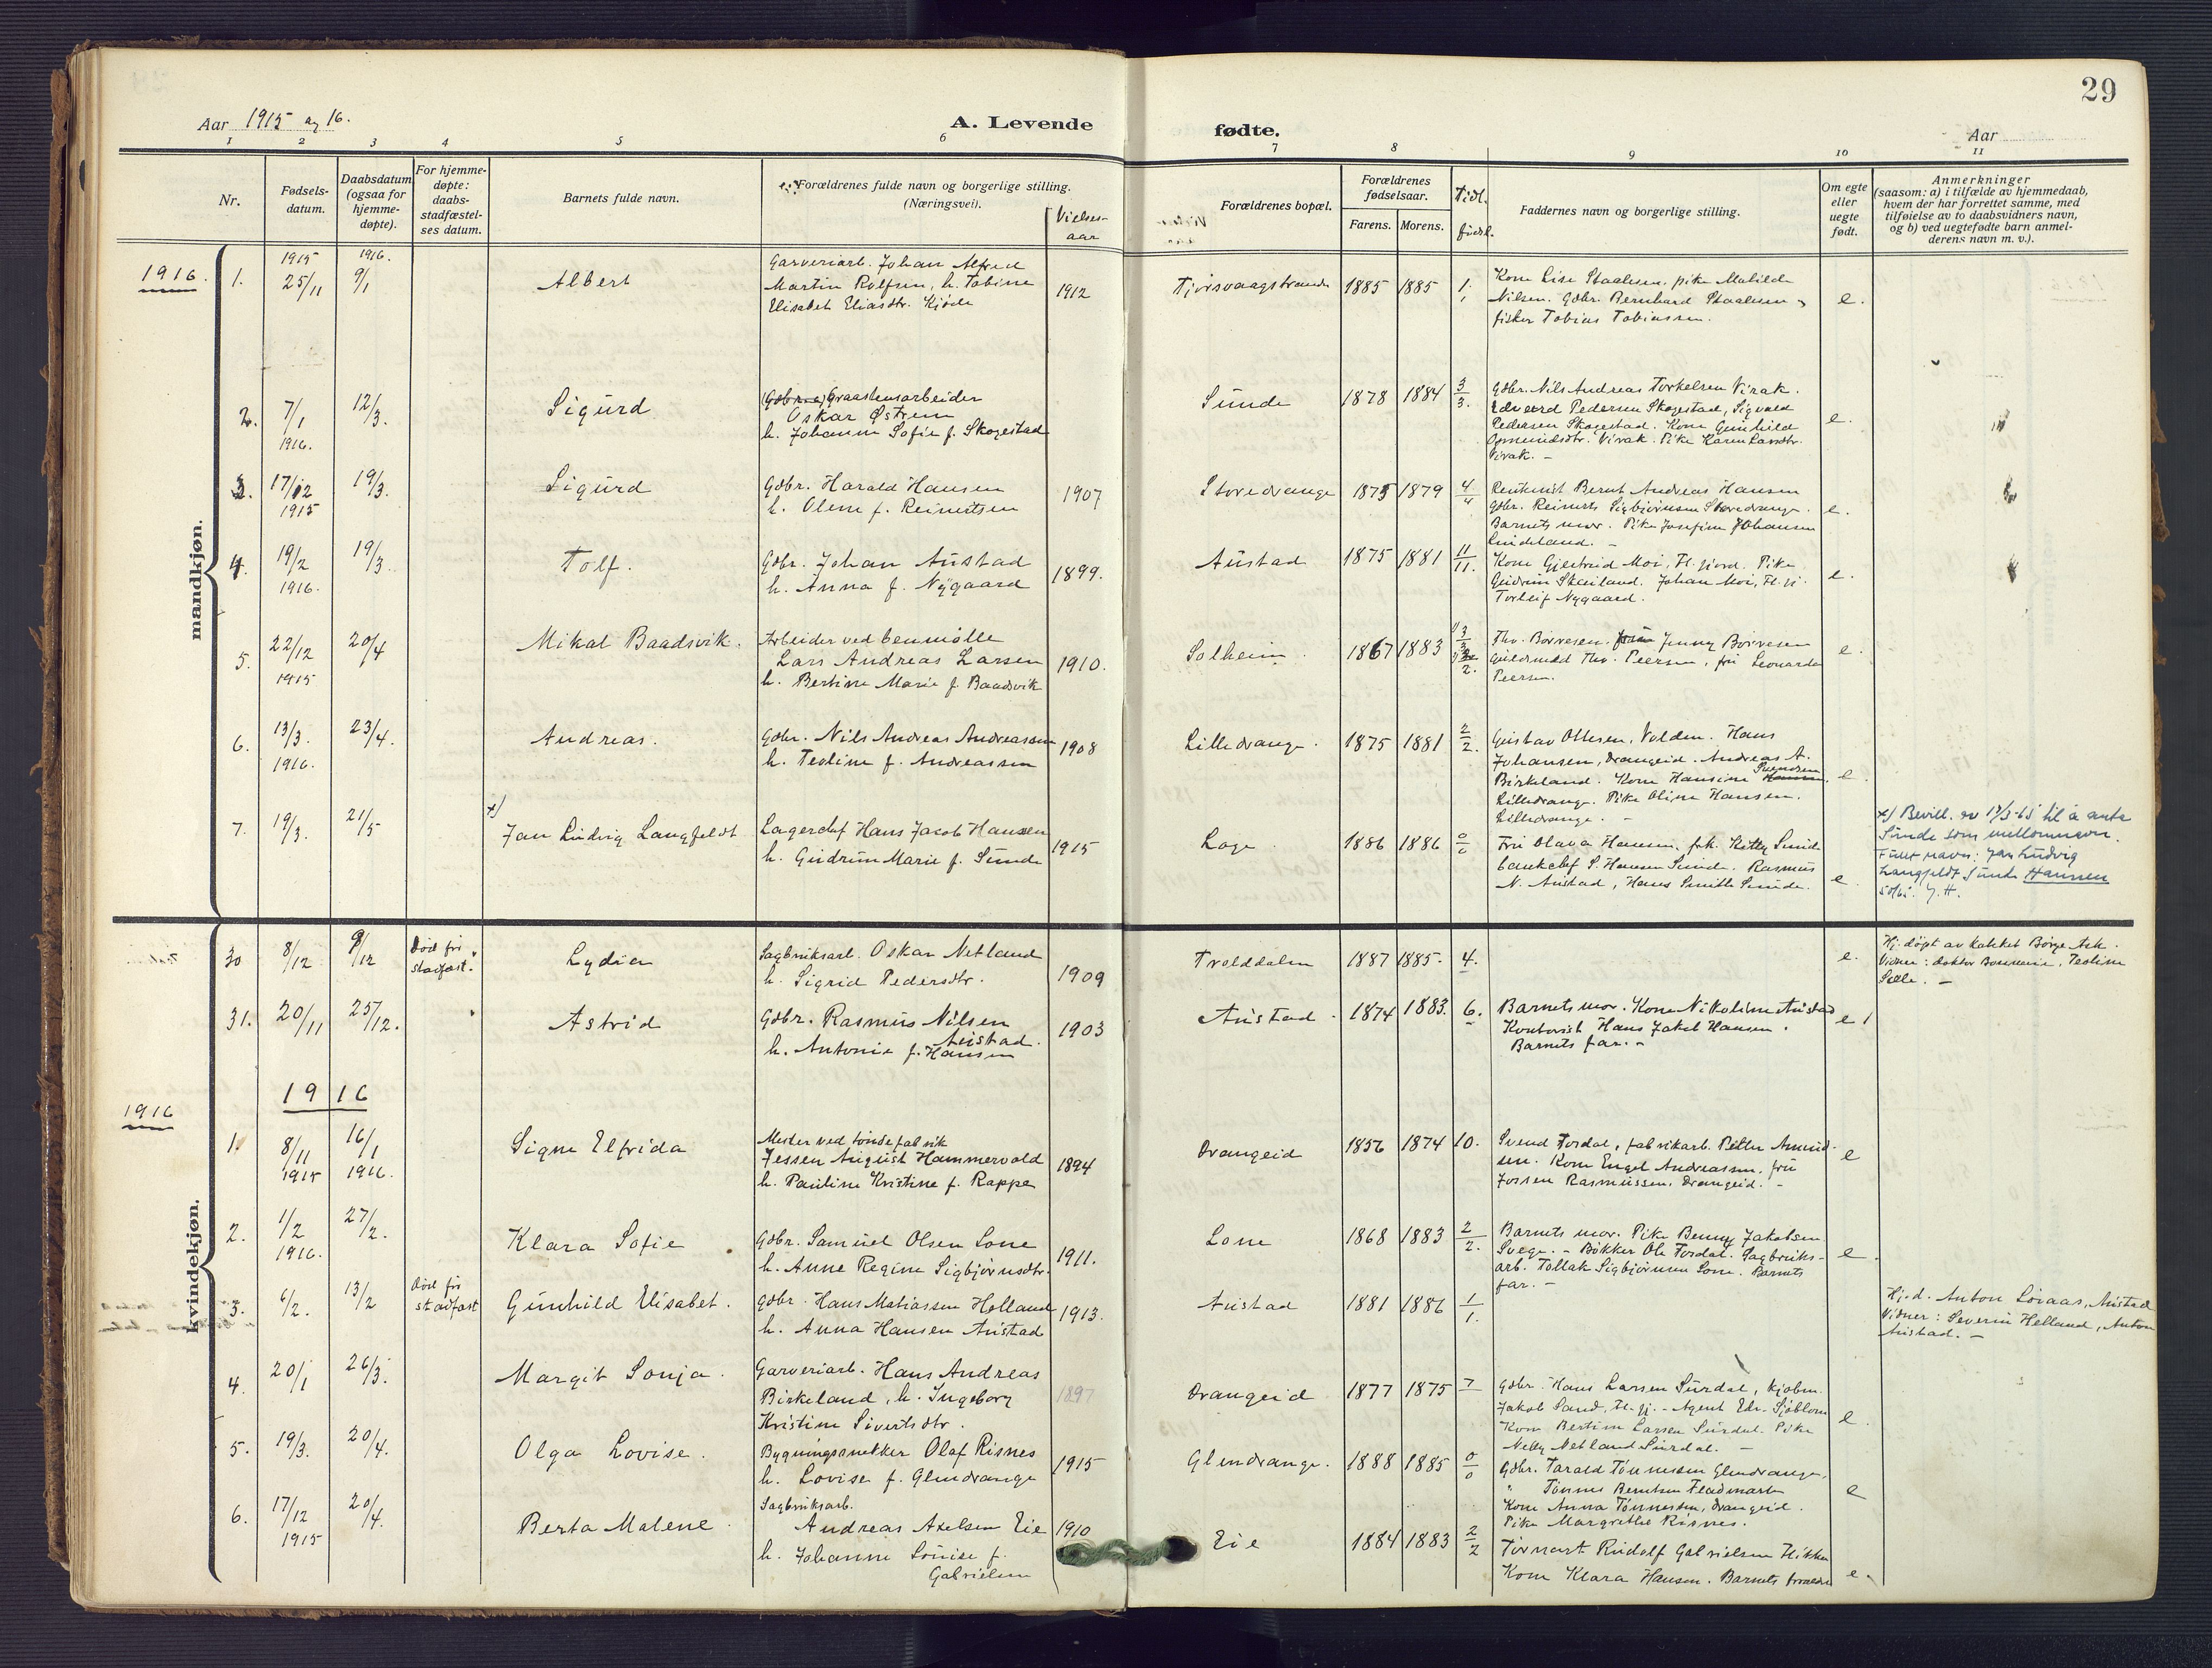 29
Aar 1915 og 16.
A. Levende
fødte.
Aar
1 2 3 4 5 6 7 8 9 10 11
Nr.
Fødsels-
datum.
Daabsdatum
(ogsaa for
hjemme-
døpte).
For hjemme-
døpte:
daabs-
stadfæstel-
ses datum.
Barnets fulde navn.
Forældrenes fulde navn og borgerlige stilling.
(Næringsvei).
Vielses-
aar
Forældrenes bopæl.
Forældrenes
fødselsaar.
Farens. Morens.
Tidl.
føds.
Faddernes navn og borgerlige stilling.
Om egte
eller
uegte
født.
Anmerkninger
(saasom: a) i tilfælde av hjemmedaab,
hvem der har forrettet samme, med
tilføielse av to daabsvidners navn,
og b) ved uegtefødte barn anmel-
derens navn m. v.).
mandkjøn.
1916.
1. 1915 25/11 1916. 9/1 Albert
Garveriarb. Johan Alfred
Martin Rolfsen, h. Tobine
Elisabet Eliasdtr. Kjøde
1912
Tjorsvaagstranden 1885 1885 1/1
Kone Lise Staalesen. pike Matilde
Nilsen. Gdbr. Bernhard Staalesen,
fisker Tobias Tobiassen.
e.
2. 7/1 1916. 12/3. Sigurd
(Gdbr. e) Graastensarbeider
Oskar Østrem
h. Johanne Sofie f. Skogestad
Sunde 1878 1884 3/3.
Gdbr. Nils Andreas Torkelsen Virak.
Edvard Pedersen Skogestad, Sigvald
Pedersen Skogestad. Kone Gunhild
Osmundsdtr. Virak. Pike Karen Larsdtr.
Virak. -
e.
3. 17/12 1915 19/3. Sigurd
Gdbr. Harald Hansen
h. Olene f. Reinertsen
1907
Storedrange 1875 1879 4/4
Rentenist Bernt Andreas Hansen
Gdbr. Reinert Sigbjørnsen Storedrange.
Barnets mor. Pike Josefine Johansen
Lindeland. -
e.
4. 19/2 1916. 19/3. Tolf.
Gdbr. Johan Austad
h. Anna f. Nygaard
1899.
Austad 1875 1881 11/11.
Kone Gjertrud Moi, Fl. gjord. Pike
Gudrun Skeiland. Johan Moi, Fl. gj.
Torleif Nygaard.
e.
5. 22/12 1915 20/4 Mikal Baadsvik.
Arbeider ved benmølle
Lars Andreas Larsen
h. Bertine Marie f. Baadsvik
1910.
Solheim. 1867 1883
Thv. Børresen. Jenny Børresen
Guldsmed Thv. Peersen, fru Leonarda
Peersen.
e.
6. 13/3. 1916. 23/4. Andreas.
Gdbr. Nils Andreas Andreassen
h. Teoline f. Andreassen
1908
Lilledrange. 1875 1881 2/2.
Gustav Ottesen, Volden. Hans
Johansen, Drangeid. Andreas A.
Birkeland. Kone Hansine Svendsen
Lilledrange. Pike Oline Hansen.
Lilledrange. -
e.
7. 19/3. 21/5 x) Jan Ludvig Langfeldt
Lagerchef Hans Jacob Hansen
h. Gudrun Marie f. Sunde
1915
Loge. 1886 1886 0/0
Fru Olava Hansen, frk. Kitty Sunde
bankchef S. Hansen Sunde. Rasmus
N. Austad, Hans Smith Sunde.
e.
x) Bevill. av 17/3-65 til å anta
Sunde som mellomnavn.
Fullt navn: Jan Ludvig
Langfeldt Sunde Hansen
J. H.
kvindekjøn.
30 8/12 9/12 Død før stadfæst. Lydia
Sagbruksarb. Oskar Netland
h. Sigrid Pedersdtr.
1909
Trolddalen 1887 1885. 4.
e.
Hj. døpt av Katket Børge Ask.
Vidner: doktor Bommerie, Teoline
Salle. -
31. 20/11 25/12. Astrid
Gdbr. Rasmus Nilsen
Austad.
h. Antonie f. Hansen
1903
Austad. 1874 1883. 6.
Barnets mor. Kone Nikoline Austad
Kontorist Hans Jakob Hansen.
Barnets far. -
e
1916
1916
1. 8/11 1915 16/1 1916. Signe Elfrida
Mester ved tøndefabrik
Jessen August Hammervold
h. Pauline Kristine f. Rappe
1894
Drangeid 1856 1874 10.
Svend Tordal, fabrikarb. Petter Amund-
sen. Kone Engel Andreassen, fru
Jossen Rasmussen. Drangeid. -
e
2. 1/2 1916. 27/2. Klara Sofie
Gdbr. Samuel Olsen Lone
h. Anne Regine Sigbjørnsdtr.
1911.
Lone 1868 1883 2/2.
Barnets mor. Pike Benny Jakobsen
Svege. - Bøkker Ole Tordal. Sagbruks-
arb. Tollak Sigbjørnsen Lone. Barnets
far. -
e.
3. 6/2. 13/2 Død før stadfæst Gunhild Elisabet.
Gdbr. Hans Matiassen Helland
h. Anna Hansen Austad
1913.
Austad 1881 1886 1/1.
Hj. d. Anton Løvaas, Austad
Vidner: Severin Helland, Anton
Austad. -
4. 20/1 26/3. Margit Sonja.
Garveriarb. Hans Andreas
Birkeland, h. Ingeborg
Kristine Sivertsdtr.
1897
Drangeid 1877 1875 7
Gdbr. Hans Larsen Surdal, kjøbm.
Jakob Sand, Fl. gj. - Agent Edv. Sjøblom
Kone Bertine Larsen Surdal. Pike
Nelly Netland Surdal. -
e.
5. 19/3. 20/4. Olga Lovise.
Bygningssnekker Olaf Risnes
h. Lovise f. Glendrange
1915
Glendrange. 1888 1885 0/0
Gdbr. Tarald Tønnessen Glendrange,
" Tønnes Berntsen Fladmark
Kone Anna Tønnessen, Drangeid.
Pike Margrethe Risnes.
e
6. 17/12 1915 20/4. Berta Malene.
Sagbruksarb.
Andreas Axelsen Eie
h. Johanne Louise f.
Gabrielsen
1910
Eie 1884 1883 2/2
Tørnart Rudolf Gabrielsen Hikken
Kone Klara Hansen. Barnets forældre
e.